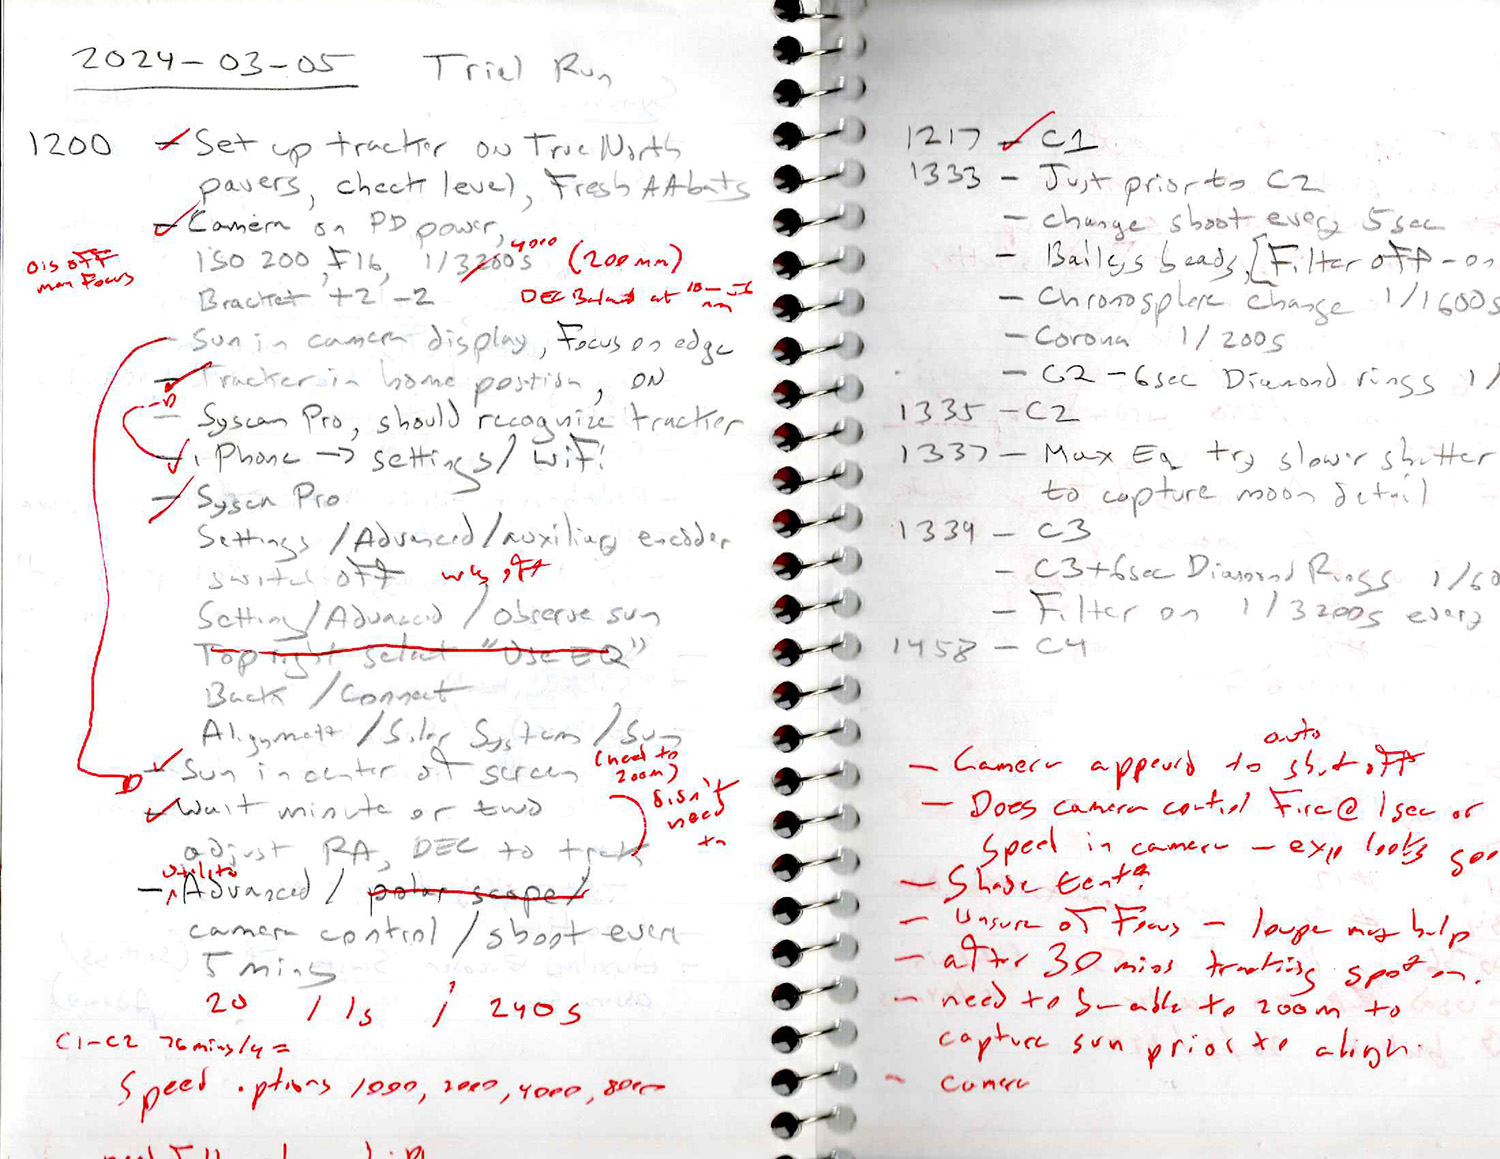 2024-03-05 Trial Run
1200 - Set up tracker on True North
pavers, check level, Fresh AA bats
- Camera on PD power,
ois off
man Focus
ISO 200, F16, 1/3200s 4000 (200mm)
Bracket +2 -2
DEC Baland at
- Sun in camera display, Focus on edge
- Tracker in home position, ON
- Syscan Pro, should recognize tracker
- iPhone -> settings/WiFi
- Syscan Pro
Settings/Advanced/auxiliary encoder
switch off was off
Setting/Advanced/observe sun
Top right select "Use EQ"
Back/Connect
Alignmett/Solar System/Sun
- Sun in center of screen (need to
200m)
- Wait minute or two
adjust RA, DEC to track
didn't
need
to
- utility Advanced/polar scope/
camera control/shoot every
5 mins
20 / 1s / 240s
C1-C2 76mins/4=
Speed options 1000, 2000, 4000, 8000
1217 - C1
1333 - Just prior to C2
- change shoot every 5sec
- Baileys beads, [Filter off - on
- Chronosphere change 1/1600s
- Corona 1/200s
- C2-6sec Diamond rings 1/
1335 - C2
1337 - Max Eq try slower shutter
to capture moon detail
1339 - C3
- C3+6sec Diamond Rings 1/60
- Filter on 1/3200s every
1458 - C4
- Camera appeard to auto shut off
- Does camera control Fire @ 1sec or
speed in camera - exp looks goo
- Shade tent?
- Unsure of Focus - loupe may help
- after 30 mins tracking spot on.
- need to b able to 200m to
capture sun prior to align.
- camera